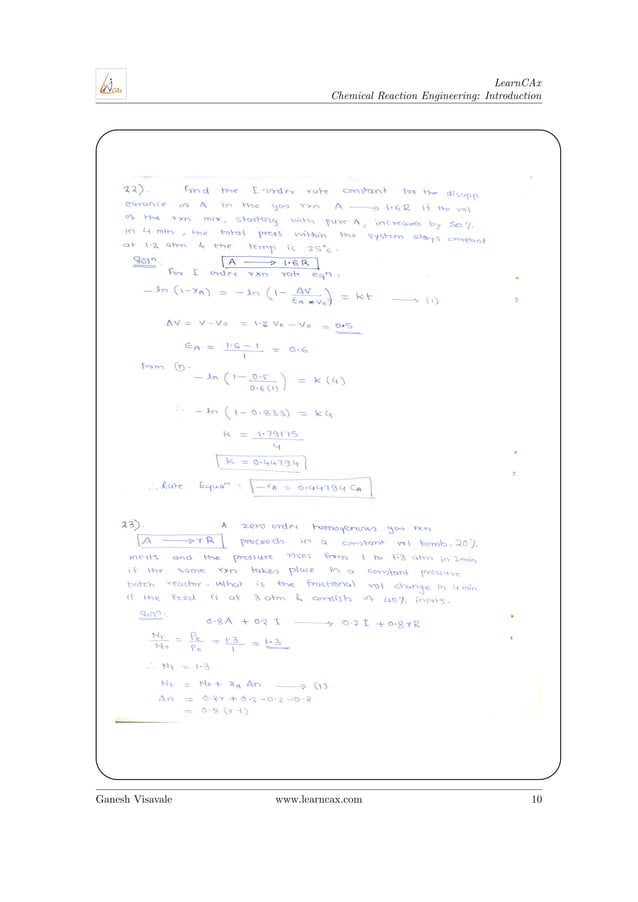 LearnCAx
Chemical Reaction Engineering: Introduction
22). Find the I-order rate constant for the disapp
earance of A in the gas rxn A ⟶ 1.6R if the vol
of the rxn mix, starting with pure A, increases by 50%
in 4 min, the total press within the system stays constant
at 1.2 atm & the temp is 25°c.
Solⁿ: A ⟶ 1.6R
For I order rxn rate eqⁿ:
-ln (1-xA) = -ln (1 - ΔV / (εA * V₀)) = kt ⟶ (1)
ΔV = V - V₀ = 1.5 V₀ - V₀ = 0.5
εA = (1.6 - 1) / 1 = 0.6
From ①.
-ln (1 - 0.5 / 0.6(1)) = k(4)
∴ -ln (1 - 0.833) = k4
k = 1.79175 / 4
k = 0.44794
∴ Rate Equaⁿ : -rA = 0.44794 CA
23). A zero order homogenious gas rxn
A ⟶ rR proceeds in a constant vol bomb. 20%
inerts and the pressure rises from 1 to 1.3 atm in 2min
if the same rxn takes place in a constant pressure
batch reactor. What is the fractional vol change in 4min
if the feed is at 3 atm & consists of 40% inerts.
Solⁿ:
0.8A + 0.2 I ⟶ 0.2 I + 0.8rR
Nt / N₀ = Pt / P₀ = 1.3 / 1 = 1.3
∴ Nt = 1.3
Nt = N₀ + xA Δn ⟶ (1).
Δn = 0.8r + 0.2 - 0.2 - 0.8
= 0.8 (r-1)
Ganesh Visavale www.learncax.com 10